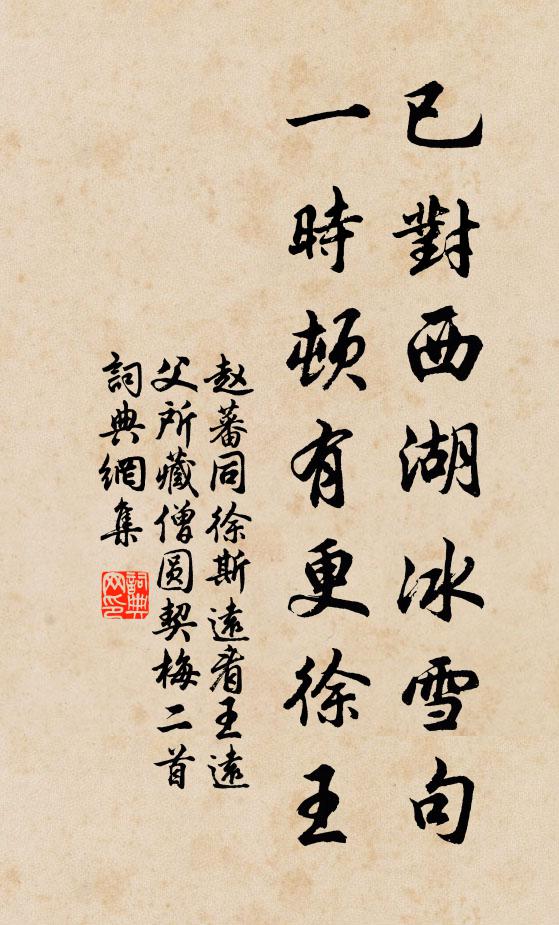 已對西湖冰雪句
一時頓有更徐王
赵蕃同徐斯遠看王遠
父所藏僧圆契梅二首
詞典網集
詞典网印